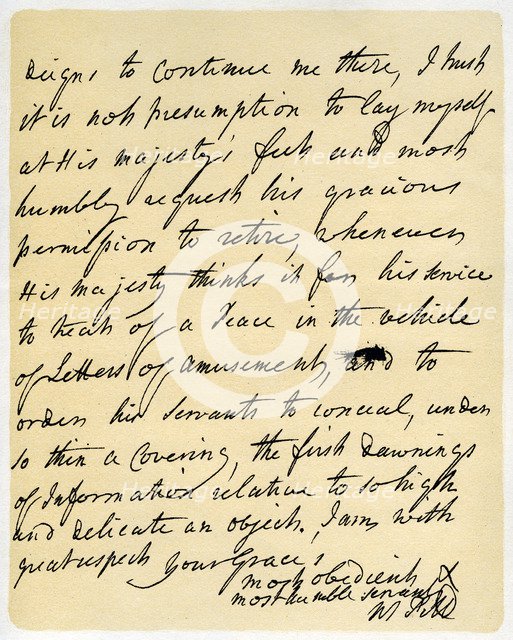 Deigns to Continue me there, I trust
it is not presumption to lay myself
at His majesty's feet and most
humbly request his gracious
permission to retire, whenever
His majesty thinks it for his service
to treat of a Peace in the vehicle
of Letters of amusement, and to
order his Servants to conceal, under
so thin a Covering, the first Dawnings
of Information relative to so high
and Delicate an object. I am with
great respect Your Grace's
most obedient &
most humble servant
W Pitt
Heritage Heritage
Heritage Heritage
Heritage Heritage
©